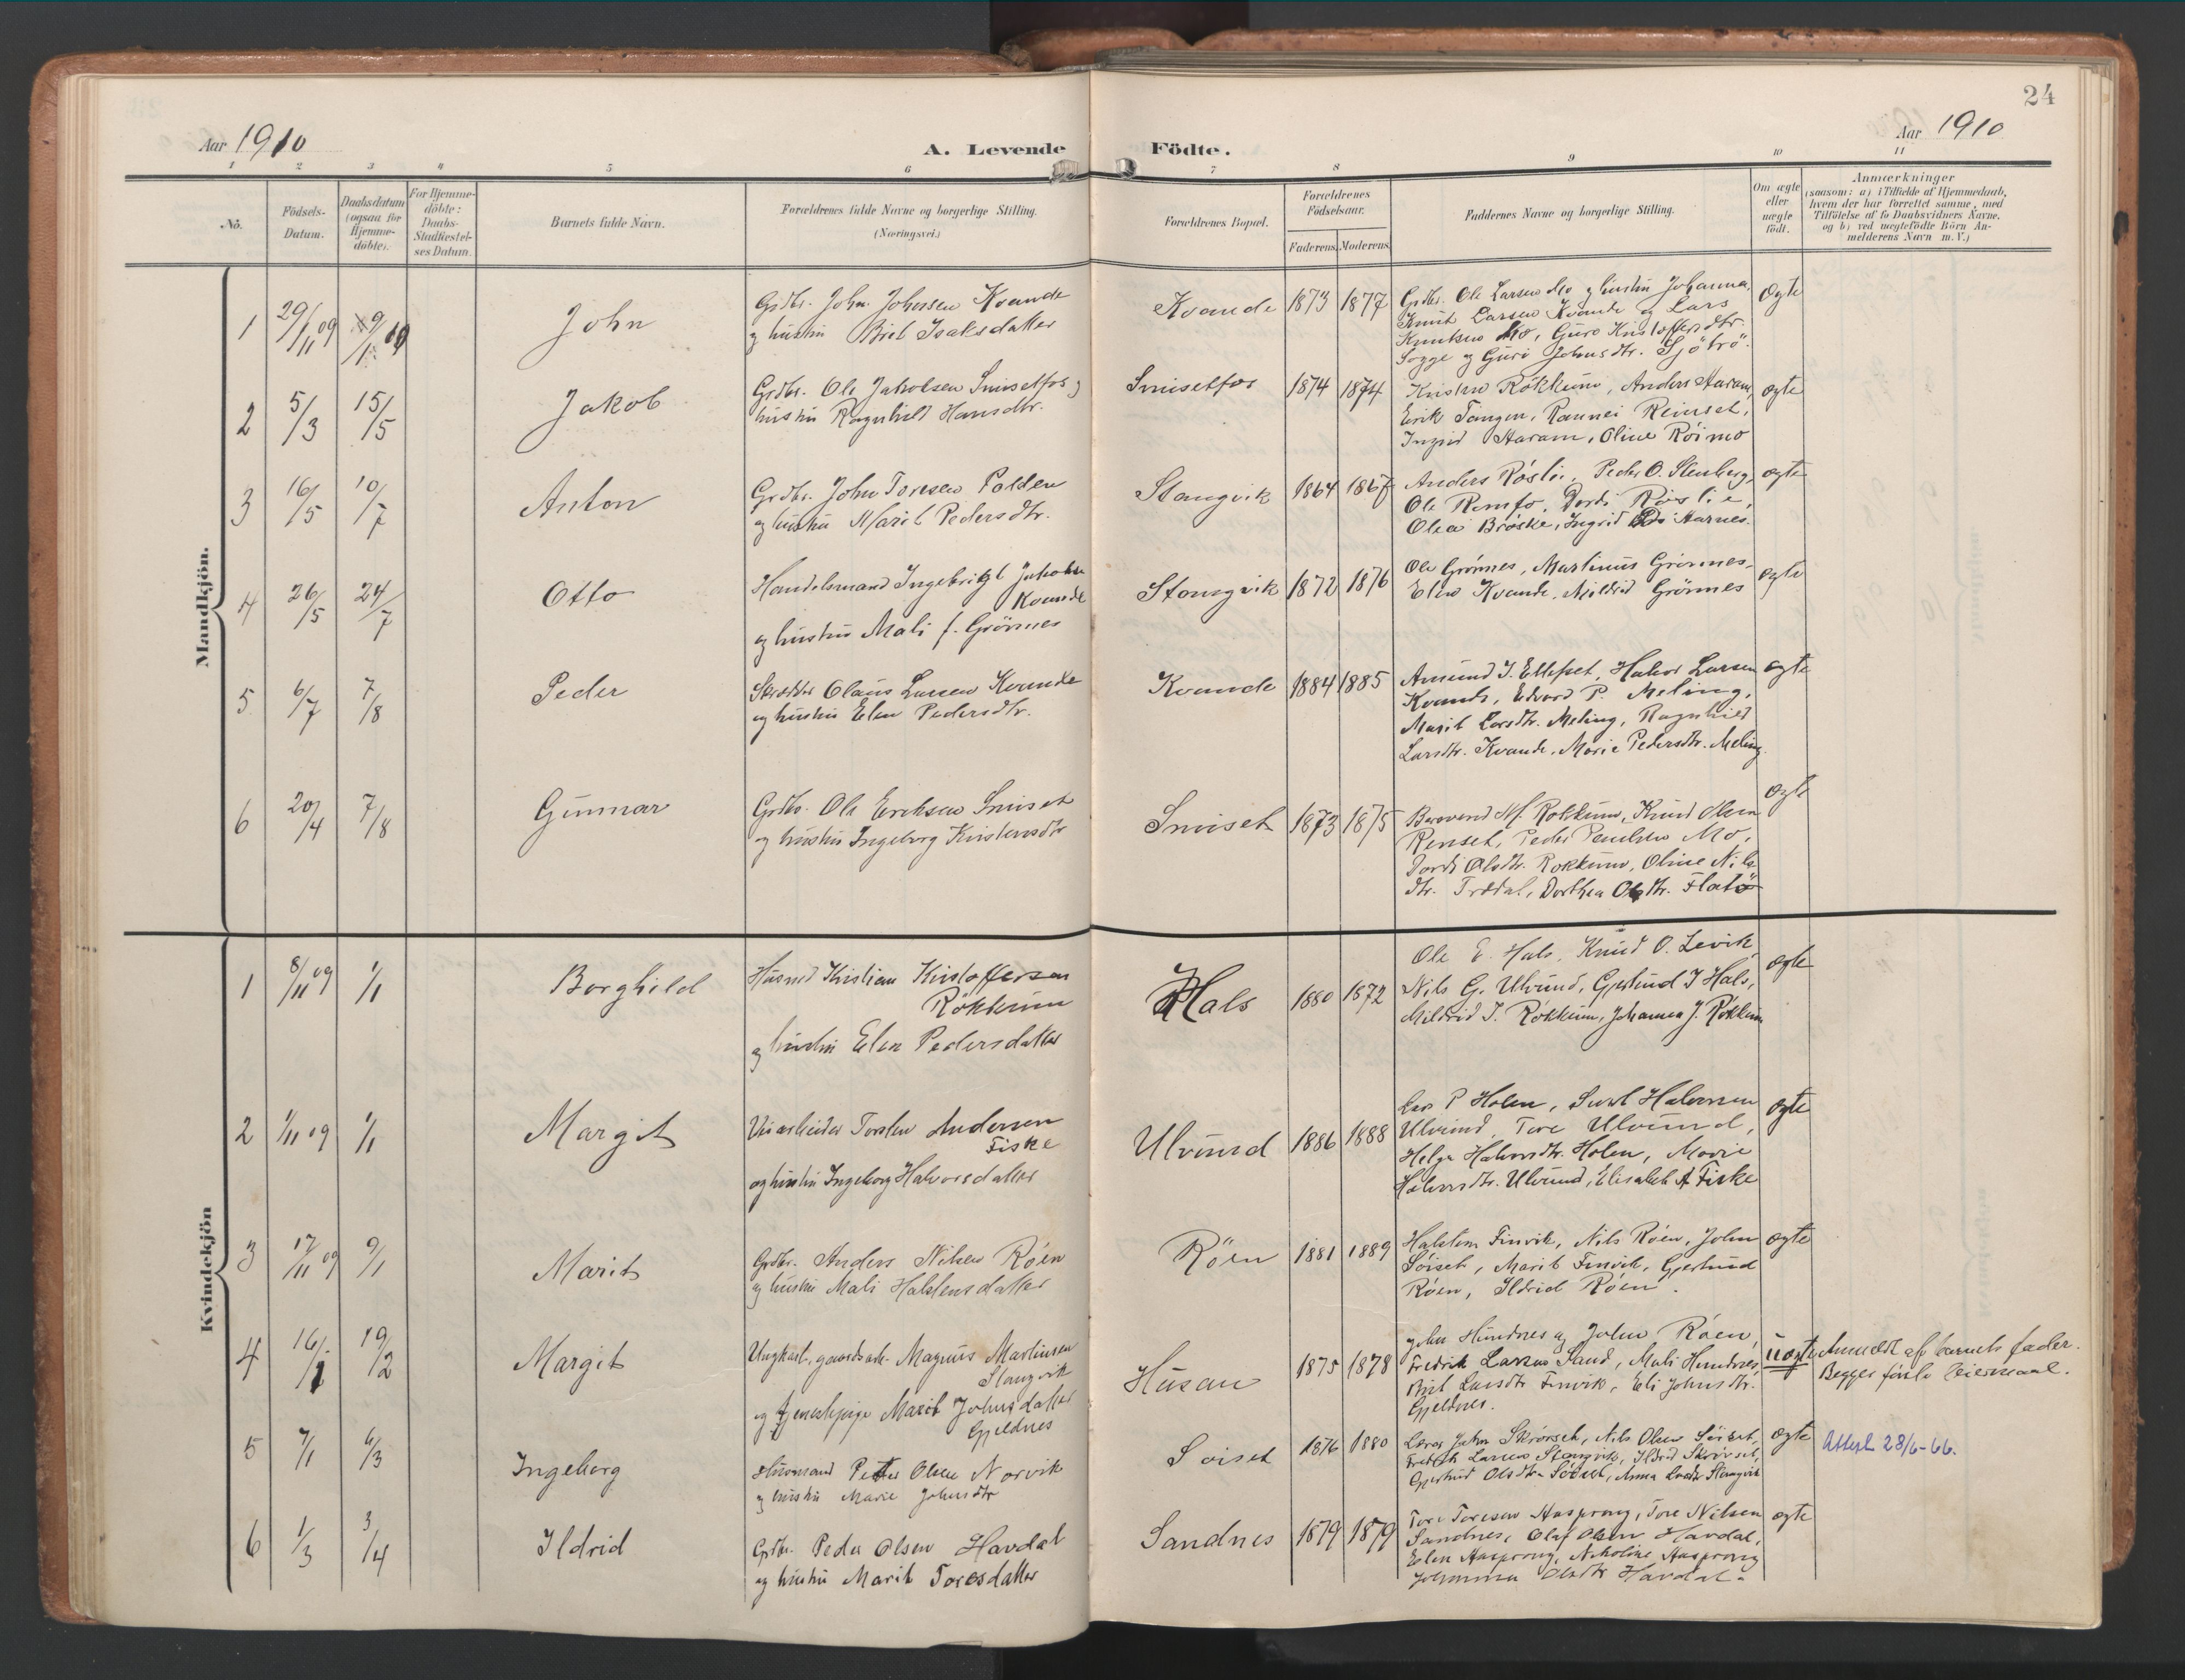 24
Aar 1910
A. Levende Födte.
Aar 1910
1 2 3 4 5 6 7 8 9 10 11
No.
Födsels-Datum.
Daabsdatum (ogsaa for Hjemme-döbte).
For Hjemme-döbte: Daabs-Stadfæstel-ses Datum.
Barnets fulde Navn.
Forældrenes fulde Navne og borgerlige Stilling. (Næringsvei.)
Forældrenes Bopæl.
Forældrenes Födselsaar.
Faderens. Moderens.
Faddernes Navne og borgerlige Stilling.
Om ægte eller uægte födt.
Anmærkninger
(saasom: a) i Tilfælde af Hjemmedaab,
hvem der har forrettet samme, med
Tilföielse af to Daabsvidners Navne,
og b) ved uægtefödte Börn An-
melderens Navn m. V.)
Mandkjön.
1 29/11 09 9/1 10 John
Grdbr. John Johnsen Kvande
og hustru Brit Isaksdatter
Kvande 1873 1877
Grdbr. Ole Larsen Mo og hustru Johanna,
Knut Larsen Kvande og Lars
Knutsen Mo, Guro Kristoffersdtr.
Sogge og Guri Johnsdtr. Sjöbrö.
ægte
2 5/3 15/5 Jakob
Grdbr. Ole Jakobsen Smisetfos og
hustru Ragnhild Hansdtr.
Smisetfos 1874 1874
Rökkum, Anders Haram,
Erik Tangen, Rannei Reinset,
Ingrid Haram, Oline Röimo
ægte
3 16/5 10/7 Anton
Grdbr. John Toresen Polden
og hustru Marit Pedersdtr.
Stangvik 1864 1867
Anders Röslie, Peder O. Stenberg,
Ole Romfo, Dordi Röislie,
Olea Bröske, Ingrid Aarnes.
ægte
4 26/5 24/7 Otto
Handelsmand Ingebrigt Jakobsen
Kvande
og hustru Mali f. Grönnes
Stangvik 1872 1876
Ole Grönnes, Martinus Grönnes,
Elen Kvande, Mildrid Grönnes
ægte
5 6/7 7/8 Peder
Skrædder Olaus Larsen Kvande
og hustru Elen Pedersdtr.
Kvande 1884 1885
Amund I. Ellefset, Halvor Larsen
Kvande, Edvard P. Meling,
Marit Larsdtr. Meling, Ragnhild
Larsdtr. Kvande, Marie Pedersdtr. Meling.
ægte
6 20/4 7/8 Gunnar
Grdbr. Ole Eriksen Smiset
og hustru Ingeborg Kristensdtr
Smiset 1873 1875
Rökkum, Knud Olsen
Renset, Peder Paulsen Mo,
Dordi Olsdtr. Rokkum, Oline Nils
dtr. Trædal, Dorthea Olsdtr. Flatö
ægte
Kvindekjön
1 8/11 09 1/1 Borghild
Husmd Kristian Kristoffersen
Rökkum
og hustru Elen Pedersdatter
Hals 1880 1872
Ole E. Hals, Knud O. Levik,
Nils G. Ulvund, Gjertrud I Hals,
Mildrid I. Rökkum, Johanna J. Rökkum
ægte
2 1/11 09 1/1 Margit
Veiarbeider Torsten Andersen
Fiske
og hustru Ingeborg Halvorsdatter
Ulvund 1886 1888
Lars P Holen, Sivert Halvorsen
Ulvund, Tore Ulvund,
Helga Halvorsdtr. Holen, Marie
Halvorsdtr. Ulvund, Elisabet A Fiske
ægte
3 17/11 09 9/1 Marit
Grdbr. Anders Nilsen Röen
og hustru Mali Halstensdatter
Röen 1881 1889
Halsten Finvik, Nils Röen, John
Söiset, Marit Finvik, Gjertrud
Röen, Ildrid Röen.
ægte
4 16/1 19/2 Margit
Ungkarl, gaardsarb. Magnus Martinsen
Stangvik
og tjenestepige Marit Johnsdatter
Gjeldnes
Husan 1875 1878
John Hundnes og John Röen,
Fredrik Larsen Sand, Mali Hundnes,
Brit Larsdtr Finvik, Eli Johnsdtr.
Gjeldnes.
uægte
Anmeldt af barnets fader.
Begges förste leiermaal.
5 7/1 6/3 Ingeborg
Husmand Petter Olsen Norvik
og hustru Marie Johnsdtr
Söiset 1876 1880
Lærer John Skrövset, Nils Olsen Söiset,
Fredrik Larsen Stangvik, Ildrid Skrövset,
Gjertrud Olsdtr. Söiset, Anna Larsdtr Stangvik
ægte
Attest 28/6-66.
6 1/3 3/4 Ildrid
Grdbr. Peder Olsen Havdal
og hustru Marit Toresdatter
Sandnes 1879 1879
Tore Toresen Aasprong, Tore Nilsen
Sandnes, Olaf Olsen Havdal,
Elen Aasprong, Nikoline Aasprong
Johanna Olsdtr Havdal.
ægte